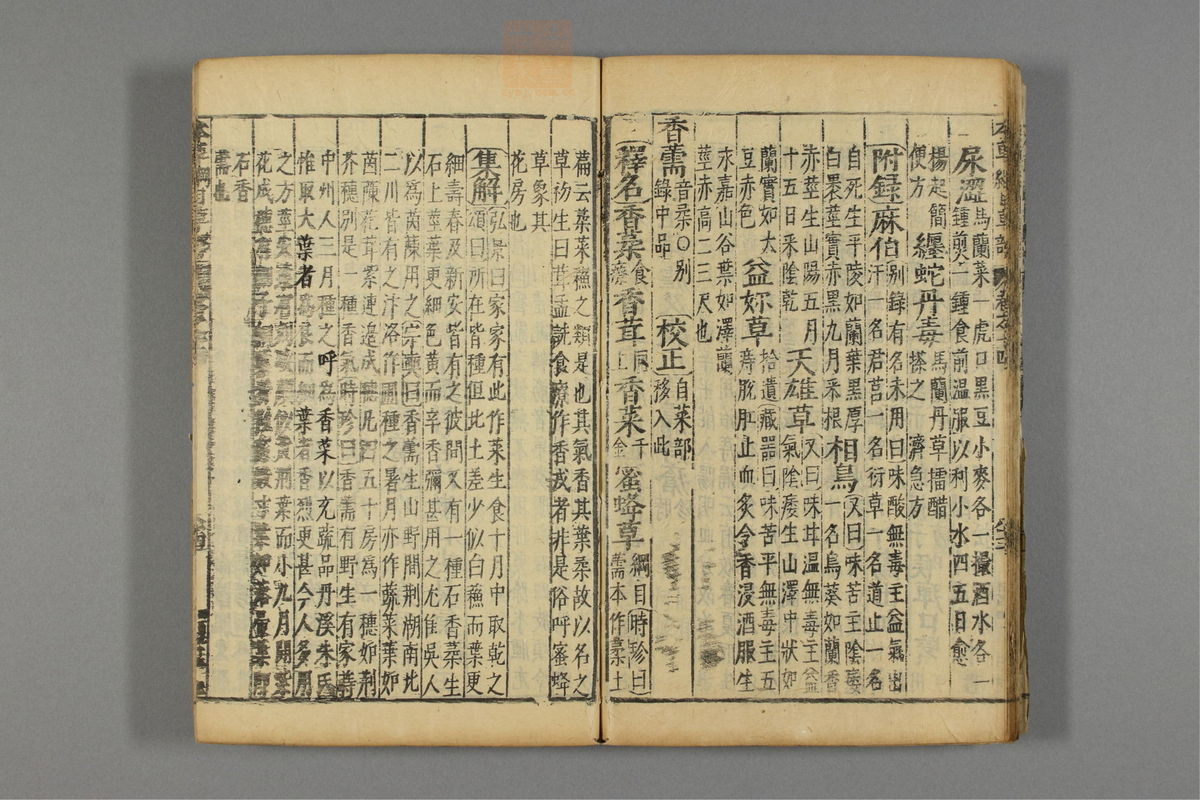 尿澀馬蘭菜一虎口黑豆小麥各一撮酒水各一
鍾煎一鍾食前温服以利小水四五日愈
楊起簡
便方 纏蛇丹毒馬蘭丹草擂醋
搽之 濟急方
附錄麻伯别錄有名未用曰味酸無毒主益氣出
汗一名君莒一名衍草一名道止一名
自死生平陵如蘭葉黑厚
白裹莖實赤黑九月釆根 相烏又曰味苦主陰痿
一名烏葵如蘭香
赤莖生山陽五月
十五日釆陰乾 天雄草又曰味甘温無毒主益
氣陰痿生山澤中狀如
蘭實如大
豆赤色 益奶草拾遺藏器曰味苦平無毒主五
痔脫肛止血炙令香浸酒服生
永嘉山谷葉如澤蘭
莖赤高二三尺也
香薷音柔○别
錄中品 校正自菜部
移入此
釋名香葇食療香茸同上香菜千金蜜蜂草綱目時珍曰
薷本作葇土
篇云葇菜蘇之類是也其氣香其葉柔故以名之
草初生曰茸孟詵食療作香戎者非是俗呼蜜蜂
草象其
花房也
集解弘景曰家家有此作菜生食十月中取乾之
頌曰所在皆種但此土差少似白蘇而葉更
細壽春及新安皆有之彼間又有一種石香葇生
石上莖葉更細色黃而辛香彌甚用之尤佳吳人
以爲茵蔯用之宗奭曰香薷生山野間荆湖南北
二川皆有之汴洛作圃種之暑月亦作蔬菜葉如
茵蔯花茸紫連邊成穗凡四五十房爲一穗如荆
芥穗别是一種香氣時珍曰香薷有野生有家蒔
中州人三月種之呼爲香菜以充蔬品丹溪朱氏
惟取大葉者爲良而細葉者香烈更甚今人多用
之方莖尖葉有刻缺頗似黃荆葉而小九月開紫
花成穗有細子細葉者僅高數寸葉如落帚葉即
石香
薷也